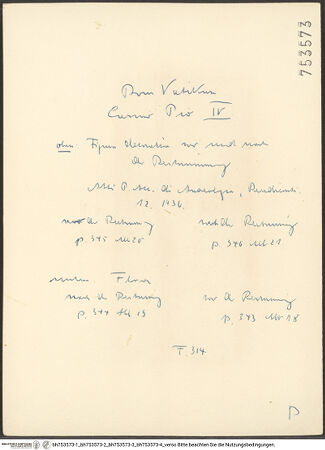 753573
Rom Vatikan
Casino Pio IV
oben Figuren Decoration vor und nach
der Restaurierung
Atti P. Acc. di Archeologia, Rendiconti
12. 1936.
vor der Restaurierung nach der Restaurierung
p. 345 Abb 20 p. 346 Abb 21
unten Flora
nach der Restaurierung vor der Restaurierung
p. 344 Abb 19 p. 343 Abb 18
F. 314
bh753573-1_bh753573-2_bh753573-3_bh753573-4_verso Bitte beachten Sie die Nutzungsbedingungen.